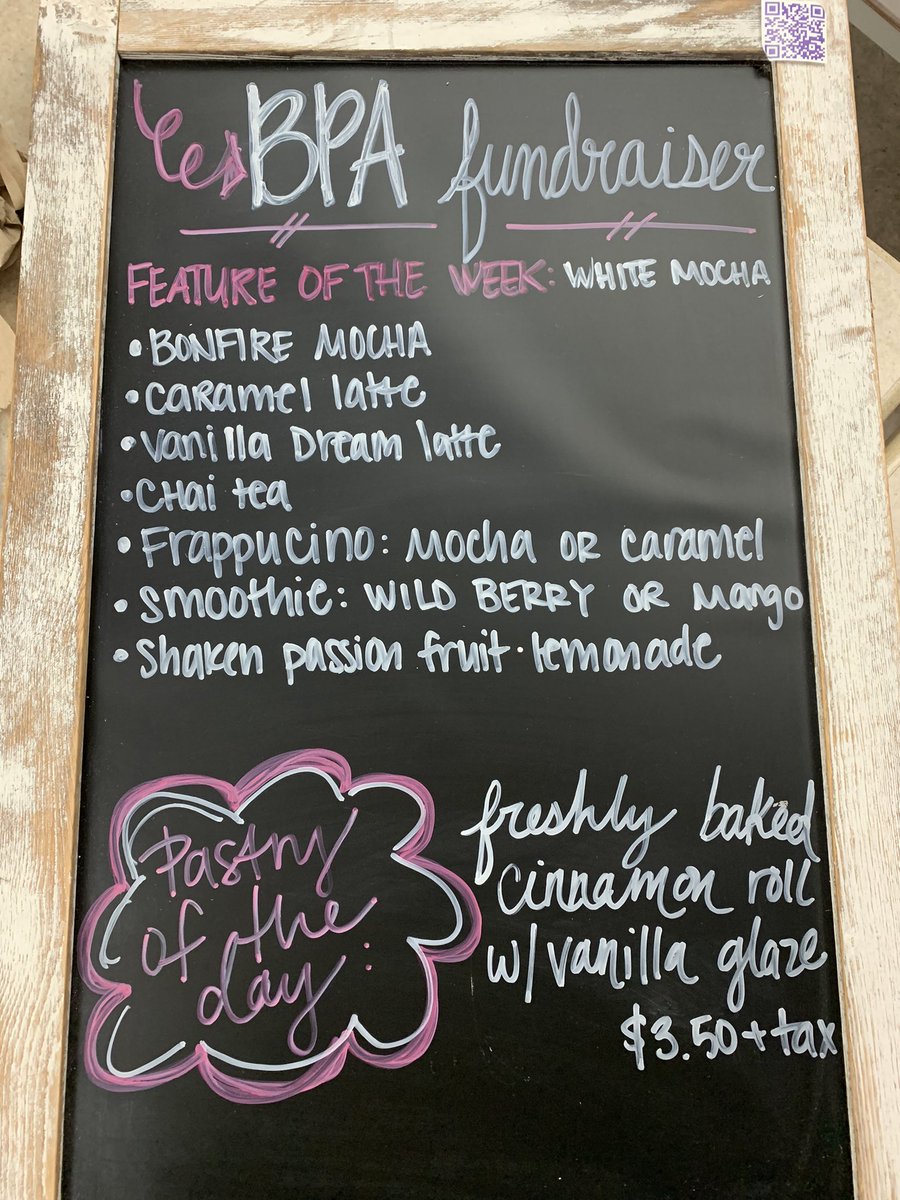 BPA fundraiser
FEATURE OF THE WEEK: WHITE MOCHA
•BONFIRE MOCHA
•Caramel latte
•Vanilla Dream latte
•CHai tea
•Frappucino: Mocha OR Caramel
•Smoothie: WILD BERRY OR Mango
•Shaken passion fruit·lemonade
Pastry
of the
day:
freshly baked
cinnamon roll
w/vanilla glaze
$3.50+tax